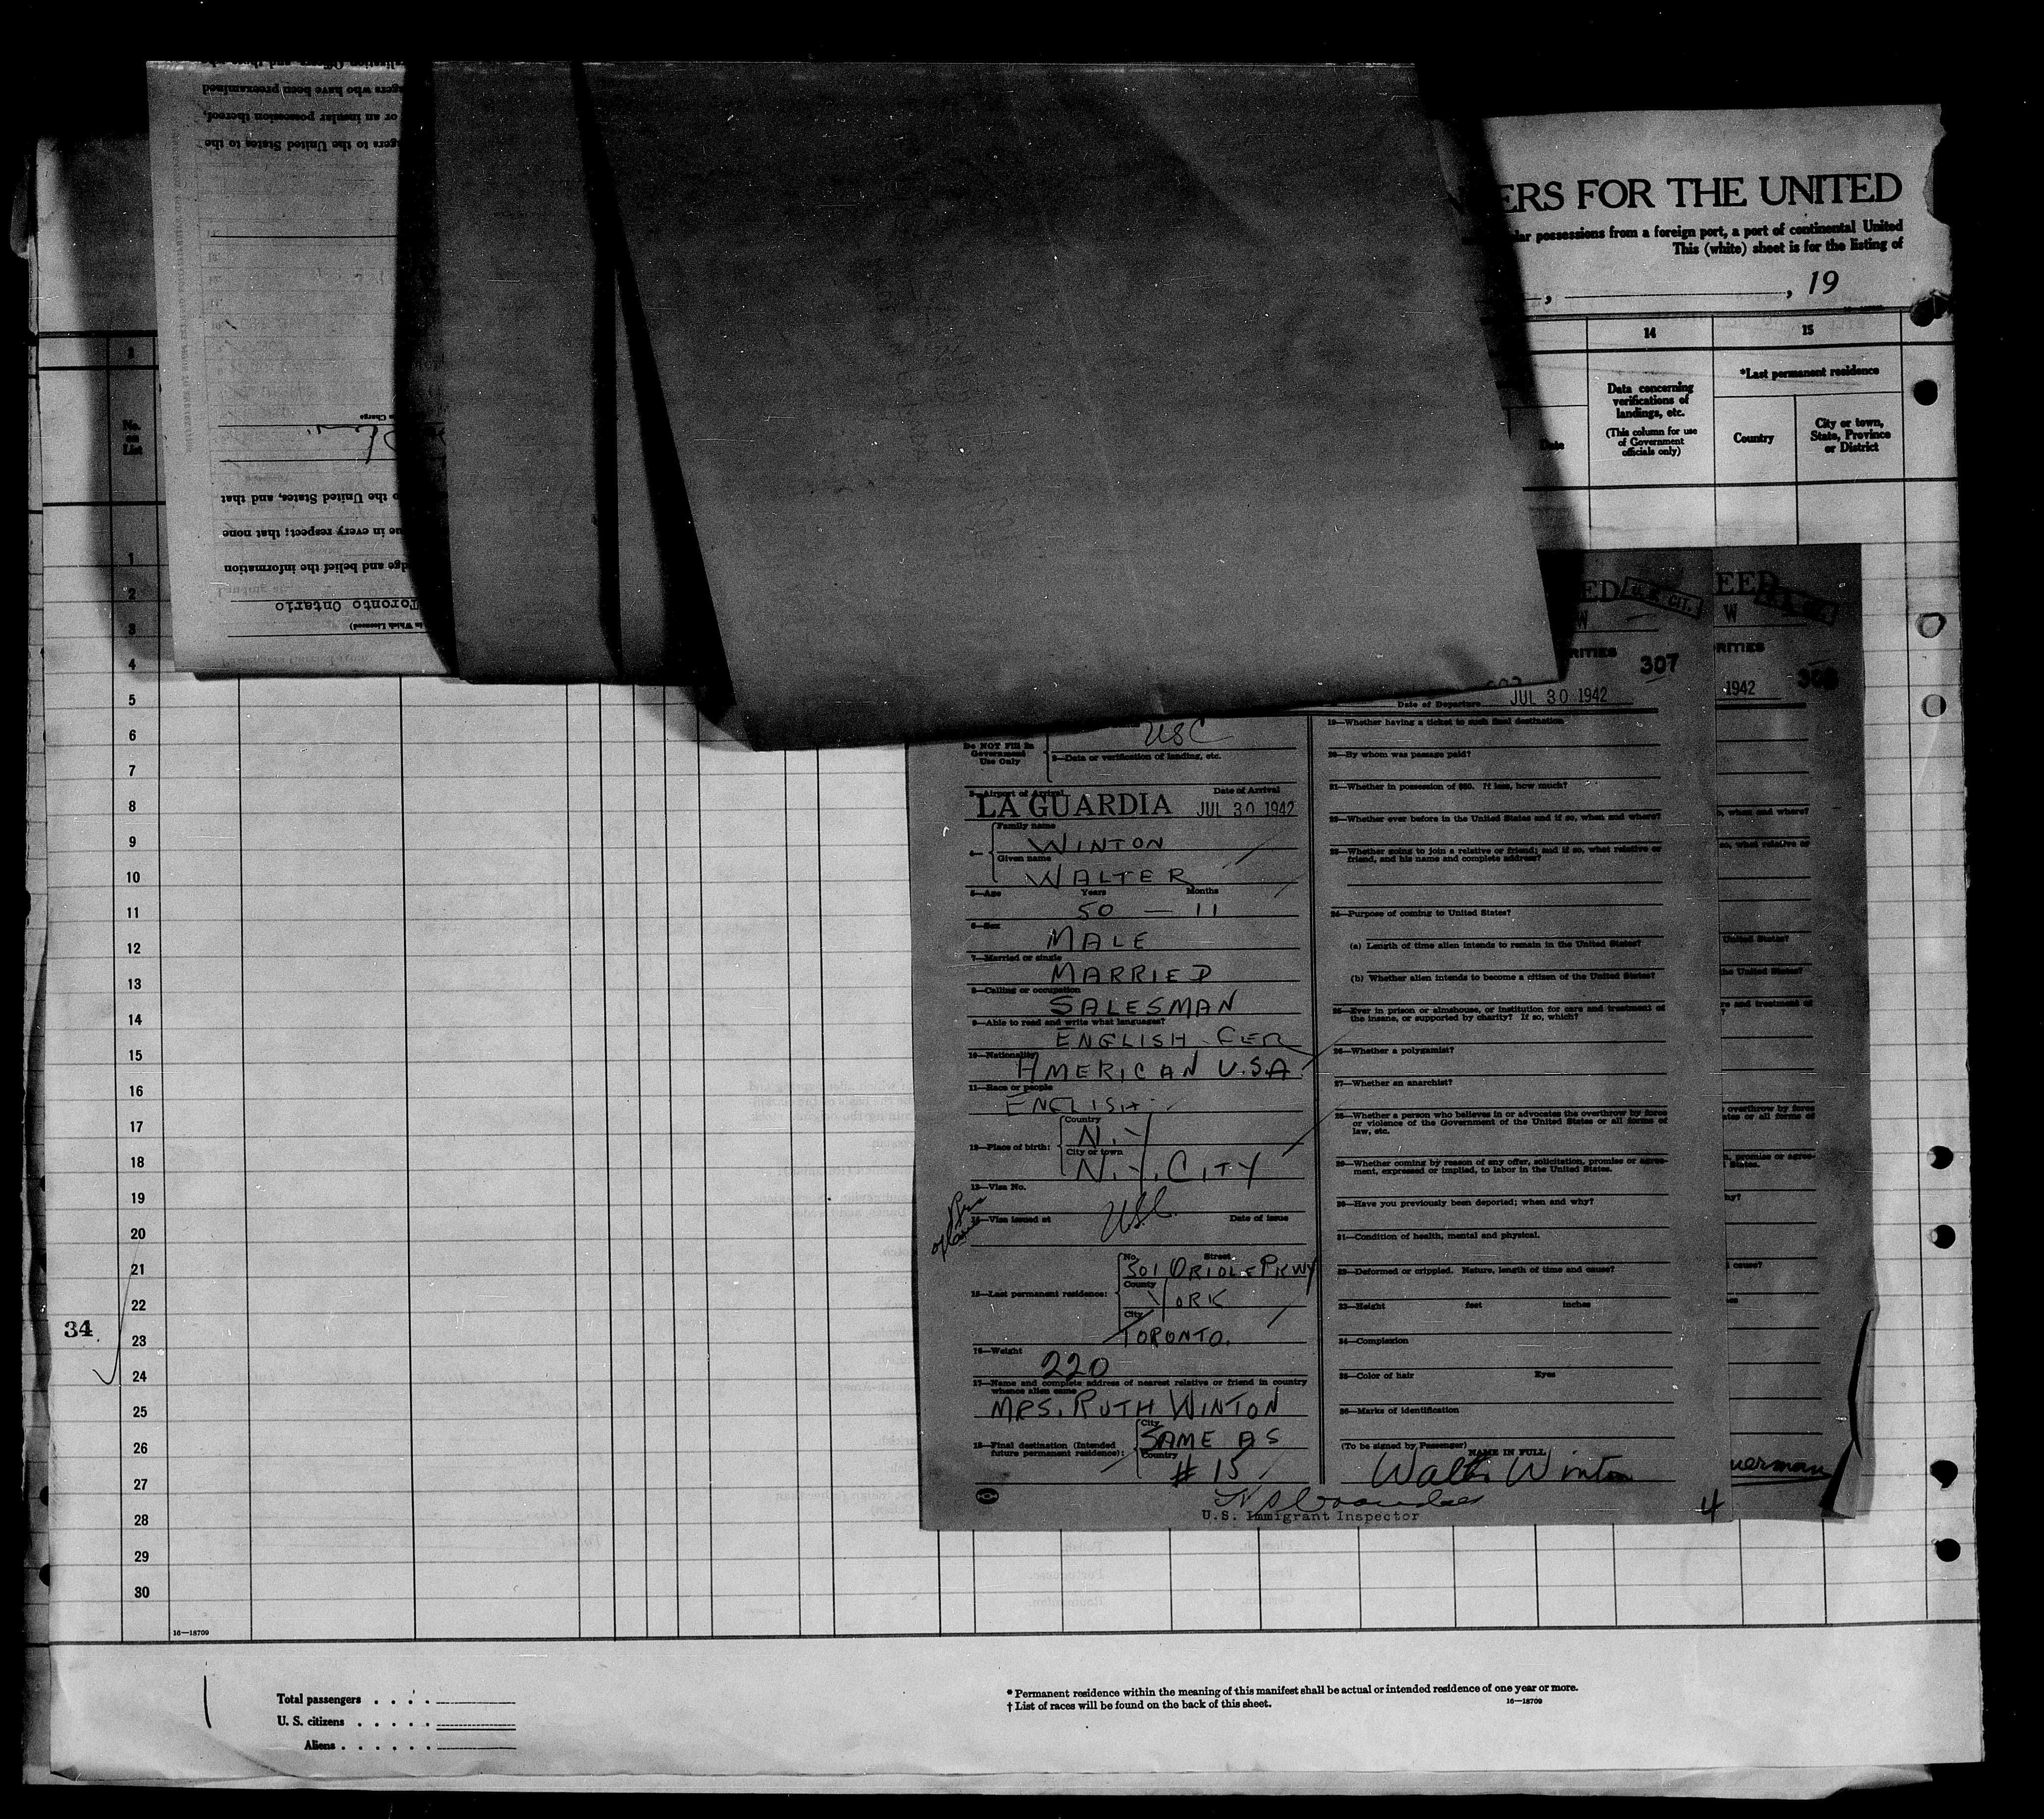 ERS FOR THE UNITED
possessions from a foreign port, a port of continental United
This (white) sheet is for the listing of
, 19
14
15
*Last permanent residence
Data concerning
verifications of
landings, etc.
(This column for use
of Government
officials only)
Date
Country
City or town,
State, Province
or District
No.
on
List
gers who have been preexamined
or an insular possession thereof,
gers to the United States to the
in Charge
o the United States, and that
ue in every respect; that none
dge and belief the information
Toronto Ontario
in Which Licensed)
1
2
3
4
5
6
7
8
9
10
11
12
13
14
15
16
17
18
19
20
21
22
23
24
25
26
27
28
29
30
34
16—18709
ED
U.S. CIT.
W
RITIES
307
Date of Departure JUL 30 1942
EED
W
RITIES
1942
308
Do NOT Fill In
Government
Use Only
USC
2—Data or verification of landing, etc.
3—Airport of Arrival
Date of Arrival
LA GUARDIA JUL 30 1942
4—
Family name
WINTON
Given name
WALTER
5—Age Years Months
50 — 11
6—Sex
MALE
7—Married or single
MARRIED
8—Calling or occupation
SALESMAN
9—Able to read and write what languages?
ENGLISH GER
10—Nationality
AMERICAN U.S.A.
11—Race or people
ENGLISH
12—Place of birth:
Country
N.Y
City or town
N.Y. CITY
13—Visa No.
14—Visa issued at
USC
Date of issue
15—Last permanent residence:
No. Street
301 ORIOLE PKWY
County
YORK
City
TORONTO.
16—Weight
220
17—Name and complete address of nearest relative or friend in country
whence alien came
MRS. RUTH WINTON
18—Final destination (Intended
future permanent residence):
City
SAME AS
Country
# 15
19—Whether having a ticket to such final destination
20—By whom was passage paid?
21—Whether in possession of $50. If less, how much?
22—Whether ever before in the United States and if so, when and where?
23—Whether going to join a relative or friend; and if so, what relative or
friend, and his name and complete address?
24—Purpose of coming to United States?
(a) Length of time alien intends to remain in the United States?
(b) Whether alien intends to become a citizen of the United States?
25—Ever in prison or almshouse, or institution for care and treatment of
the insane, or supported by charity? If so, which?
26—Whether a polygamist?
27—Whether an anarchist?
28—Whether a person who believes in or advocates the overthrow by force
or violence of the Government of the United States or all forms of
law, etc.
29—Whether coming by reason of any offer, solicitation, promise or agree-
ment, expressed or implied, to labor in the United States.
30—Have you previously been deported; when and why?
31—Condition of health, mental and physical.
32—Deformed or crippled. Nature, length of time and cause?
33—Height feet inches
34—Complexion
35—Color of hair Eyes
36—Marks of identification
(To be signed by Passenger)
NAME IN FULL
Walter Winton
U.S. Immigrant Inspector
4
Total passengers
U. S. citizens
Aliens
* Permanent residence within the meaning of this manifest shall be actual or intended residence of one year or more.
† List of races will be found on the back of this sheet.
16—18709